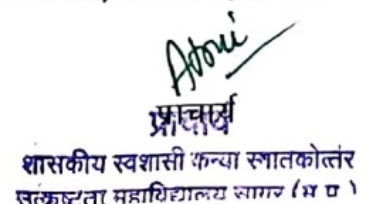 प्राचार्य
शासकीय स्वशासी कन्या स्नातकोत्तर
उत्कृष्टता महाविद्यालय सागर (म प्र)